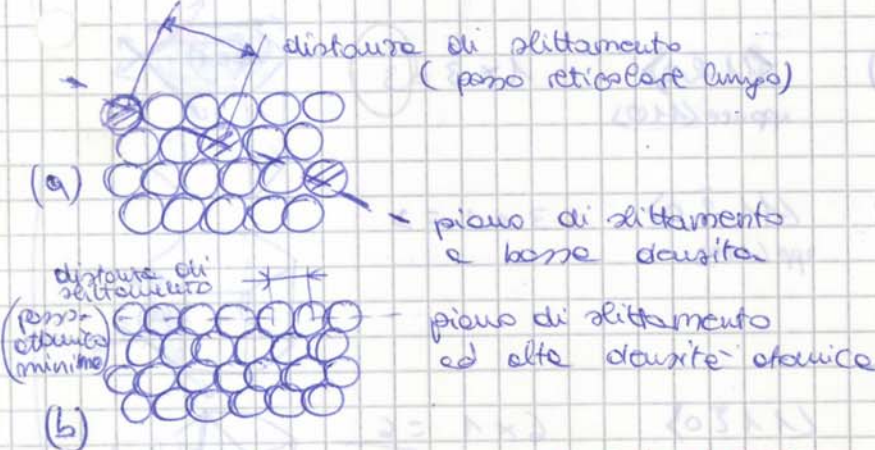 distanza di slittamento
(passo reticolare lungo)
(a)
piano di slittamento
a bassa densità
distanza di
slittamento
(passo
atomico
minimo)
piano di slittamento
ad alta densità atomica
(b)